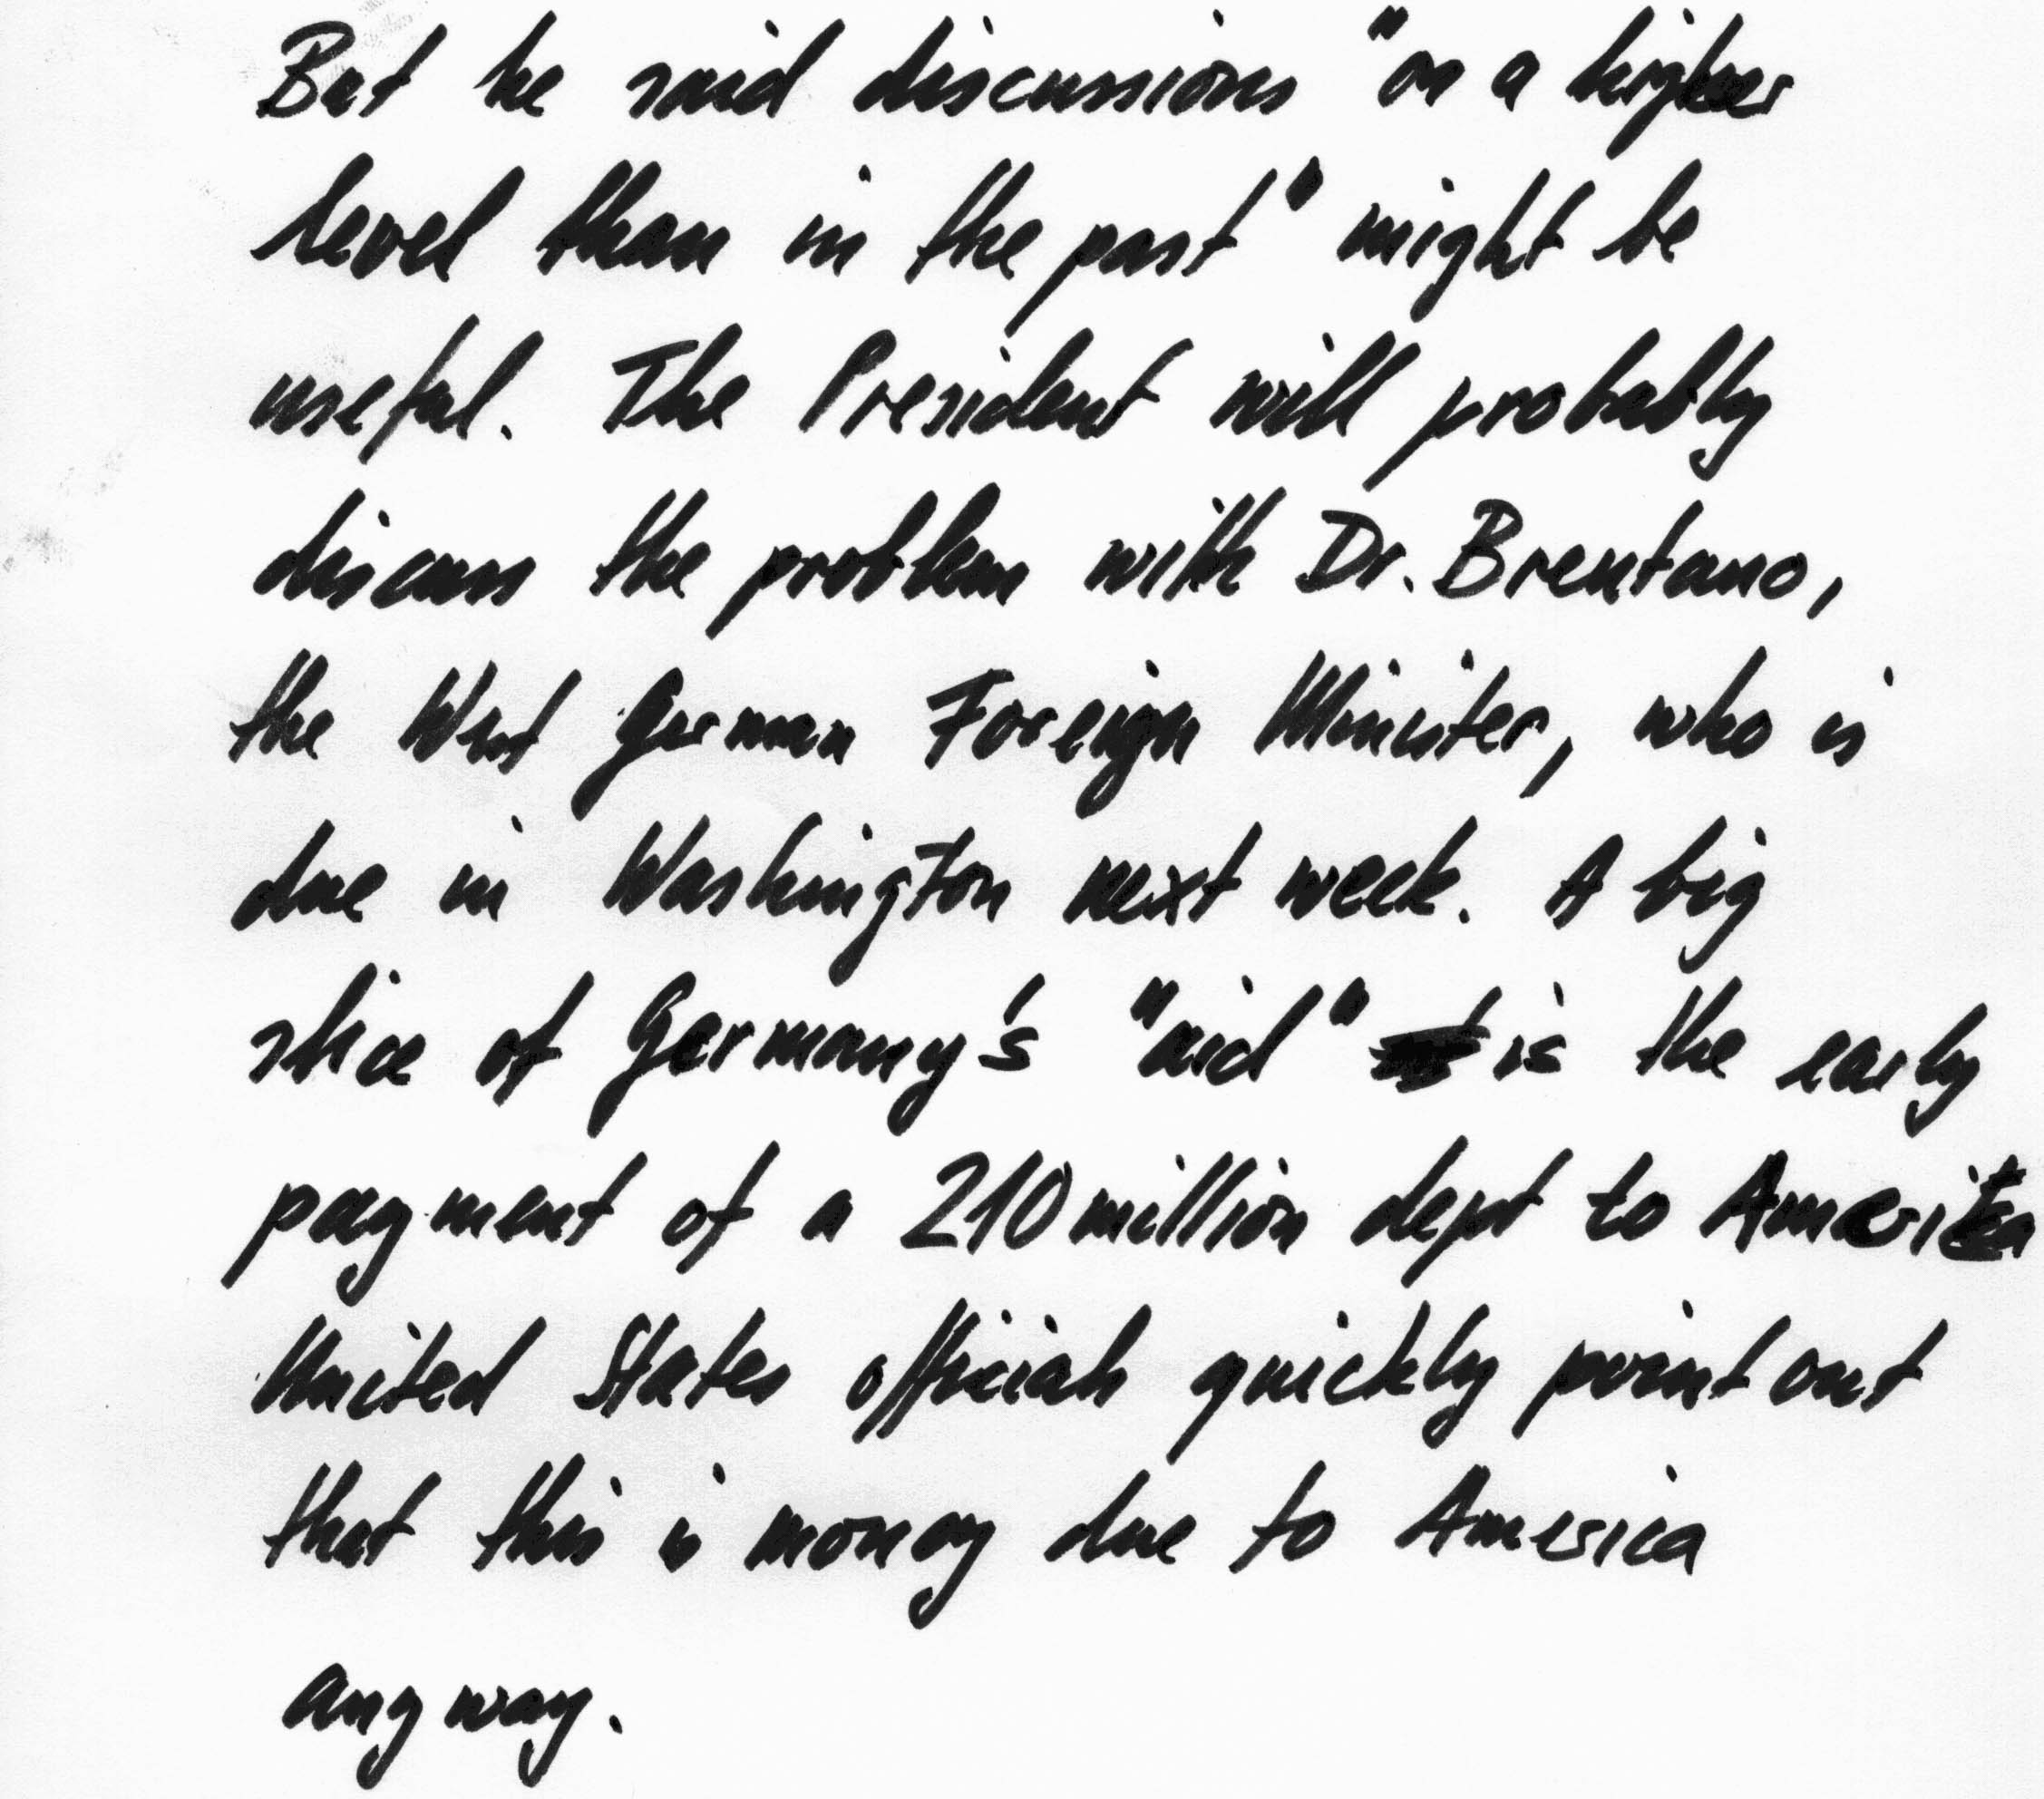 But he said discussions "on a higher
level than in the past" might be
useful. The President will probably
discuss the problem with Dr. Brentano,
the West German Foreign Minister, who is
due in Washington next week. A big
slice of Germany's "aid" is the early
payment of a 210 million dept to America
United States officials quickly point out
that this is money due to America
anyway.